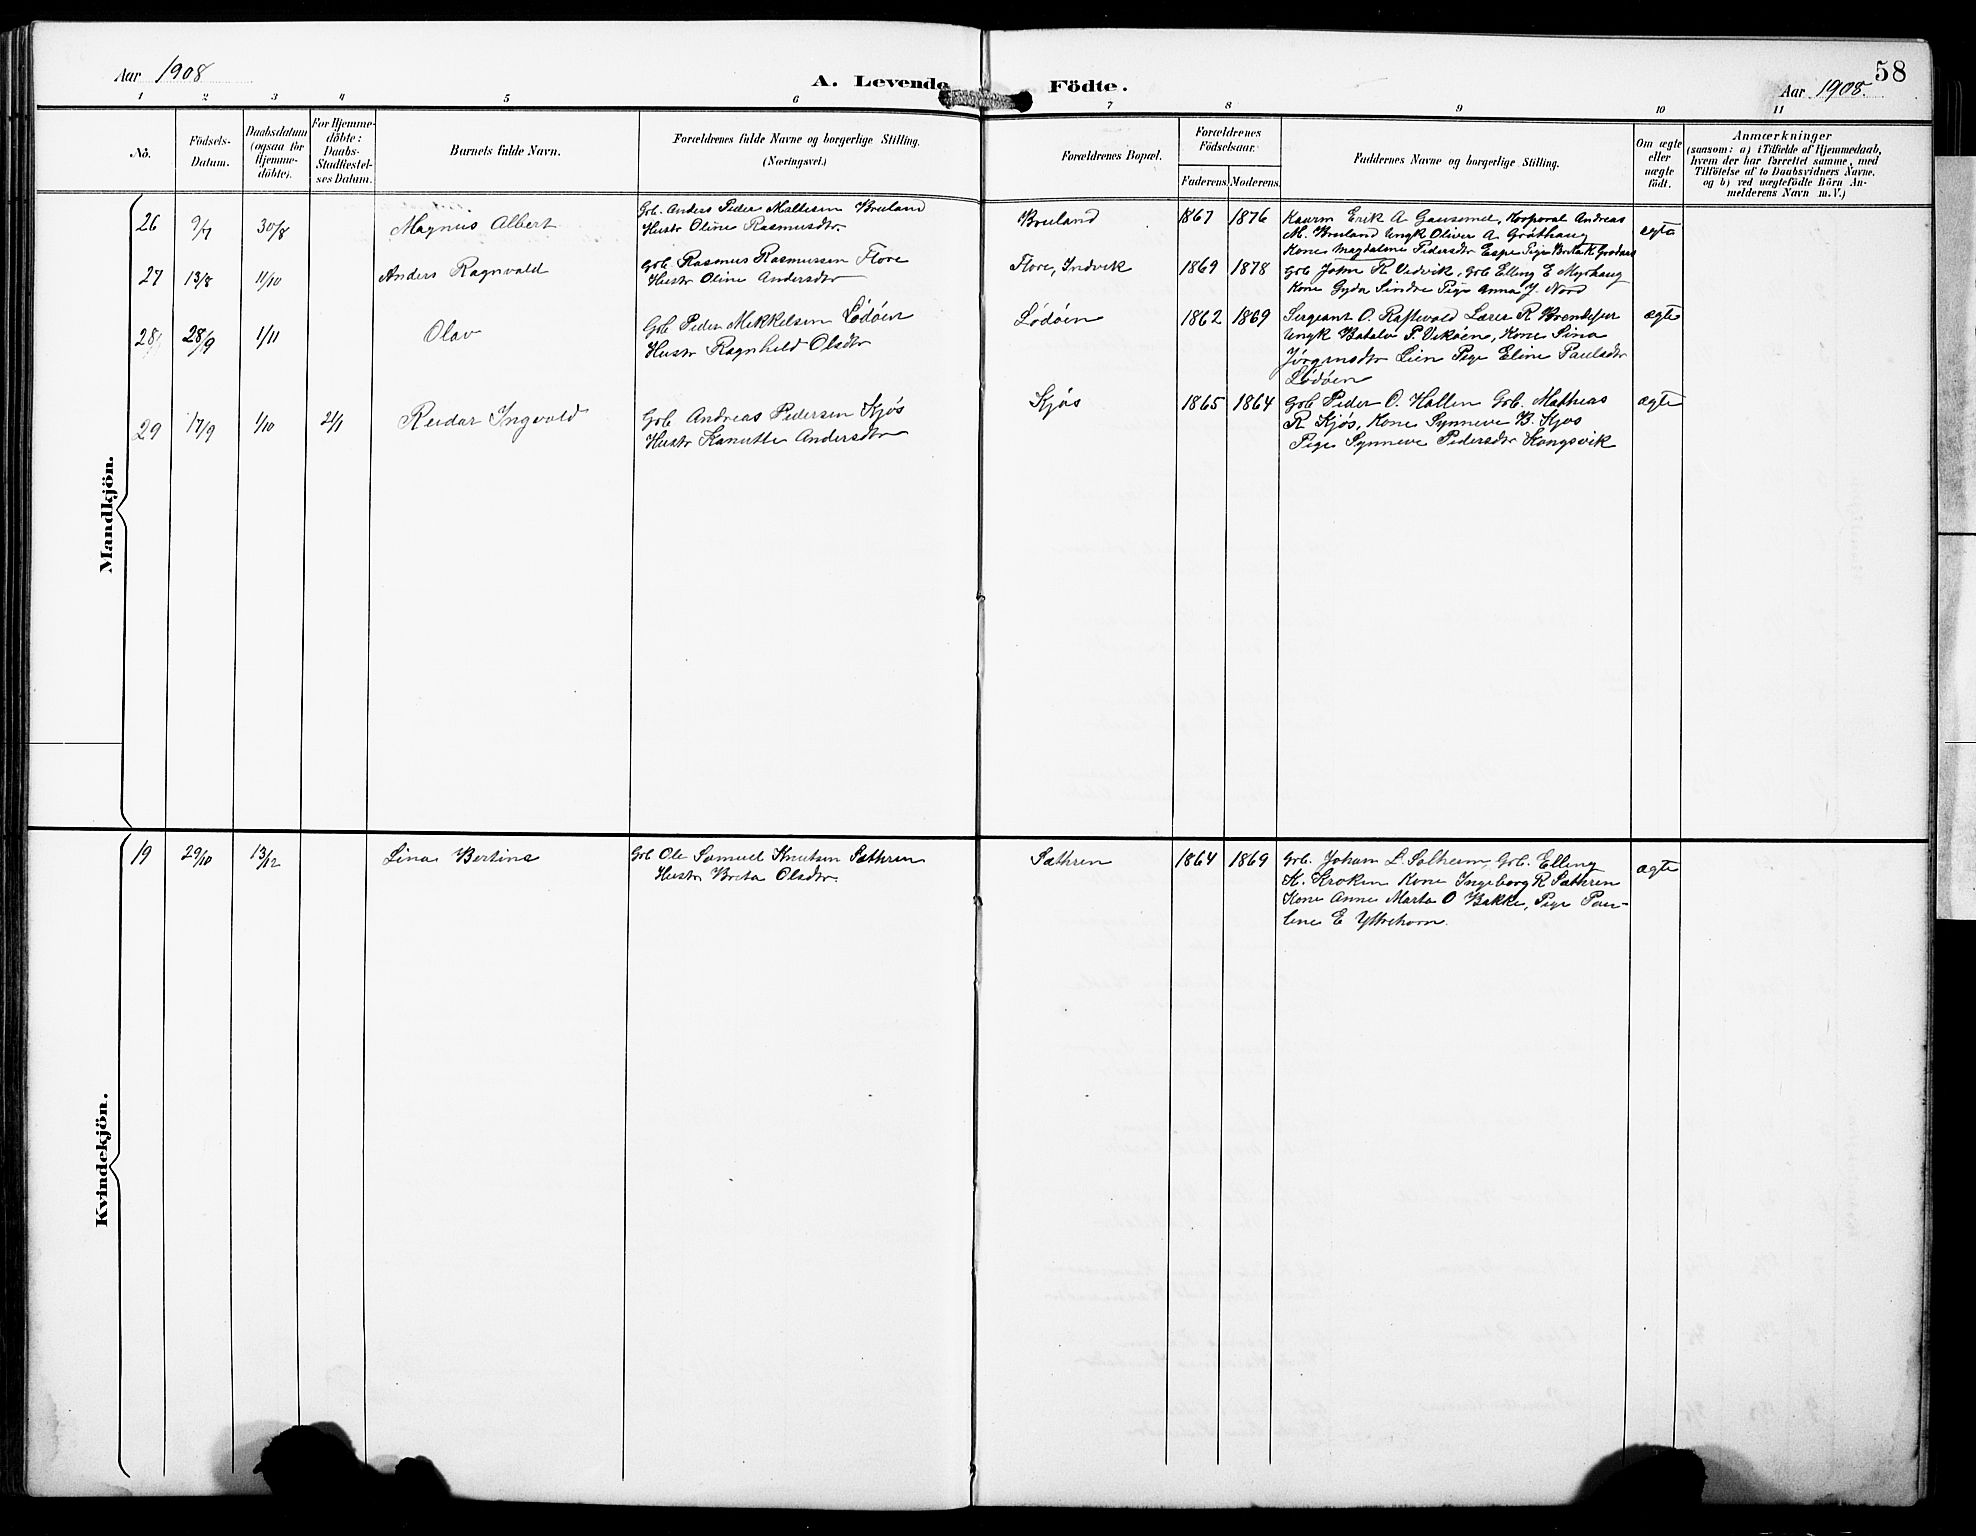 Aar 1908
A. Levende Födte.
58
Aar 1908.
1 2 3 4 5 6 7 8 9 10 11
No.
Födsels-
Datum.
Daabsdatum
(ogsaa for
Hjemme-
döbte).
For Hjemme-
döbte:
Daabs-
Stadfæstel-
ses Datum.
Barnets fulde Navn.
Forældrenes fulde Navne og borgerlige Stilling.
(Næringsvei.)
Forældrenes Bopæl.
Forældrenes
Födselsaar.
Faderens. Moderens.
Faddernes Navne og borgerlige Stilling.
Om ægte
eller
uægte
födt.
Anmærkninger
(saasom: a) i Tilfælde af Hjemmedaab,
hvem der har forrettet samme, med
Tilföielse af to Daabsvidners Navne,
og b) ved uægtefödte Börn An-
melderens Navn m. V.)
Mandkjön.
26 9/7 30/8 Magnus Albert
Grb. Anders Peder Mathisen Breiland
Hustr Oline Rasmusdtr
Breiland 1867 1876
Kaarm Erik A Gausemel, Korporal Andreas
M. Breiland Ungk Oliver A Gröthaug
Kone Magdalene Pedersdtr Espe Pige Berta K
ægte
27 13/8 11/10 Anders Ragnvald
Grb. Rasmus Rasmussen Flore
Hustr Oline Andersdtr
Flore, Indvik 1869 1878
Grb John R Vedvik, Grb Elling E Myrhaug
Kone Gyda Sindre Pige Anna J. Nord
28 28/9 1/11 Olav
Grb Peder Mikkelsen Lödöen
Hustr Ragnhild Olsdtr
Lödöen 1862 1869
Sergeant O. Raftevold Lærer R
Ungk Batalv P. Viköen, Kone Sina
Jörgensdtr Lien Pige Eline Paulsdtr
Lödöen
ægte
29 17/9 1/10 2/1 Reidar Ingvald
Grb Andreas Pedersen Kjös
Hustr Kanutte Andersdtr
Kjös 1865 1864
Grb Peder O. Hallen Grb. Mathias
R Kjös, Kone Synneve B. Kjos
Pige Synneve Pedersdtr Kongsvik
ægte
Kvindekjön.
19 29/10 13/12 Lina Bertine
Grb Ole Samuel Knutsen Sæthren
Hustr Brita Olsdtr.
Sæthren 1864 1869
Grb. Johan L. Solheim, Grb. Elling
K. Kroken Kone Ingeborg R Sæthren
Kone Anne Marta O Bakke, Pige Pau-
line E Yttrehorn.
ægte